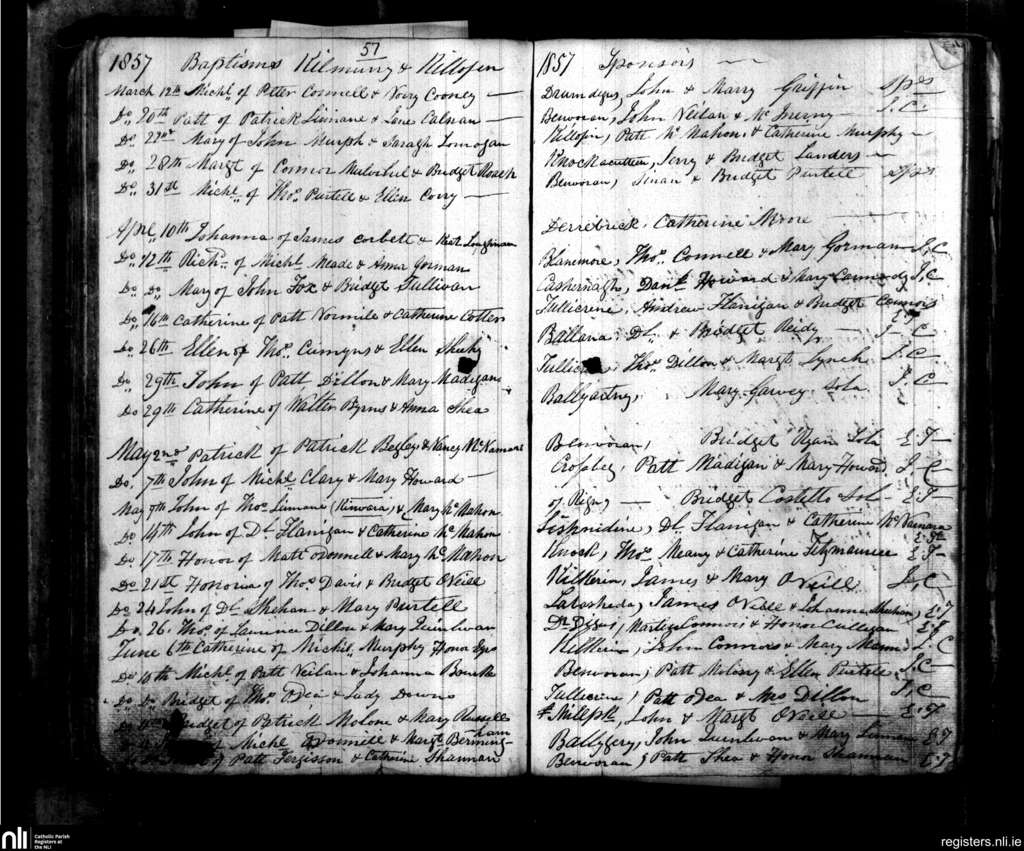 57
1857 Baptisms Kilmurry & Killofin
March 12th Michl. of Peter Connell & Nory Cooney —
Do. 20th Patt of Patrick Linnane & Lene —
Do. 22nd Mary of John Murph & Saragh Lonrogan
Do. 28th Margt of Connor & Bridget Roach
Do. 31st Michl. of Thos. Purtell & Ellen Corry —
10th Johanna of James Corbett &
Do. 12th Richd. of Michl Meade & Anna Gorman
Do. Do. Mary of John Fox & Bridget Sullivan
Do. 16th Catherine of Patt Normile & Catherine Cotter
Do. 26th Ellen of Thos. Cumyns & Ellen Sheehy
Do 29th John of Patt Dillon & Mary Madigan
Do 29th Catherine of Walter Byrns & Anna Shea
May 2nd Patrick of Patrick Begley & Nancy McNamara
Do. 7th John of Michl Clary & Mary Howard —
May 9th John of Thos Linnane (Kinvara) & Mary McMahon
Do 14th John of Dl Flanigan & Catherine McMahon
Do 17th Honor of Matt & Mary McMahon
Do 21st Honoria of Thos Davis & Bridget O'Neill
Do 24 John of Dl Shehan & Mary Purtell
Do. 26. Thos. of Laurence Dillon & Mary Quinlivan
June 6th Catherine of Michl. Murphy
Do 10th Michl of Patt Neilan & Johanna Bourke
Do Do Bridget of Thos. O'Dea & Judy Downs
Bridget of Patrick Molone & Mary Russell
of Michl & Margt Berming-
ham
of Patt Fergisson & Catherine Shannan
1857 Sponsors —
Drumdigus, John & Marry Griffin Spos
Benvoran, John Neilan & Mc Inerny — S.C.
Killofin, Patt McMahon & Catherine Murphy —
Knockacutteen, Jerry & Bridget Landers —
Benvoran, & Bridget Purtell — Spos
Derrebrick, Catherine Moore —
Blanemore, Thos. Connell & Mary Gorman S.C
Cashernagh, Danl. Howard & Mary Cormody S.C
Tullicrene, Andrew Flanigan & Bridget Connors
E.T
Ballana, Dl. & Bridget Reidy — S-C
Thos. Dillon & Margt Lynch S.C
Ballyartny, Mary Garvey Sola S.C
Benvoran, Bridget Ryan Sola E.T-
Crosbeg, Patt Madigan & Mary Howard S.C
— Bridget Costello Sol- E.T-
Lisnnidine, Dl Flanigan & Catherine McNamara
E.T
Knock, Thos. Meany & Catherine Fitzmaurice E.T-
Kilkerin, James & Mary O'Neill S.C
Labasheda, James O'Neill & Johanna Shehan, E.T
Martin Connors & Honor Culligan E.T
Kilkerin, John Connors & Mary S.C
Benvoran, Patt Molony & Ellen Purtell S.C
Tullicrene, Patt O'Dea & Mrs Dillon S.C
John & Margt O'Neill — E.T
Ballygery, John Quinlivan & Mary Linnane E.T
Benvoran, Patt Shea & Honor Shannan E.T
nli
Catholic Parish
Registers at
the NLI
registers.nli.ie